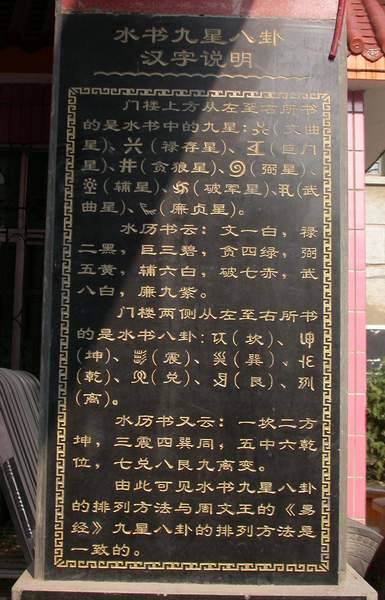 水书九星八卦
汉字说明
门楼上方从左至右所书
的是水书中的九星：(文曲
星)、(禄存星)、(巨门
星)、(贪狼星)、(弼星)、
(辅星)、(破军星)、(武
曲星)、(廉贞星)。
水历书云：文一白，禄
二黑，巨三碧，贪四绿，弼
五黄，辅六白，破七赤，武
八白，廉九紫。
门楼两侧从左至右所书
的是水书八卦：(坎)、
(坤)、(震)、(巽)、
(乾)、(兑)、(艮)、
(离)。
水历书又云：一坎二方
坤，三震四巽同，五中六乾
位，七兑八艮九离变。
由此可见水书九星八卦
的排列方法与周文王的《易
经》九星八卦的排列方法是
一致的。